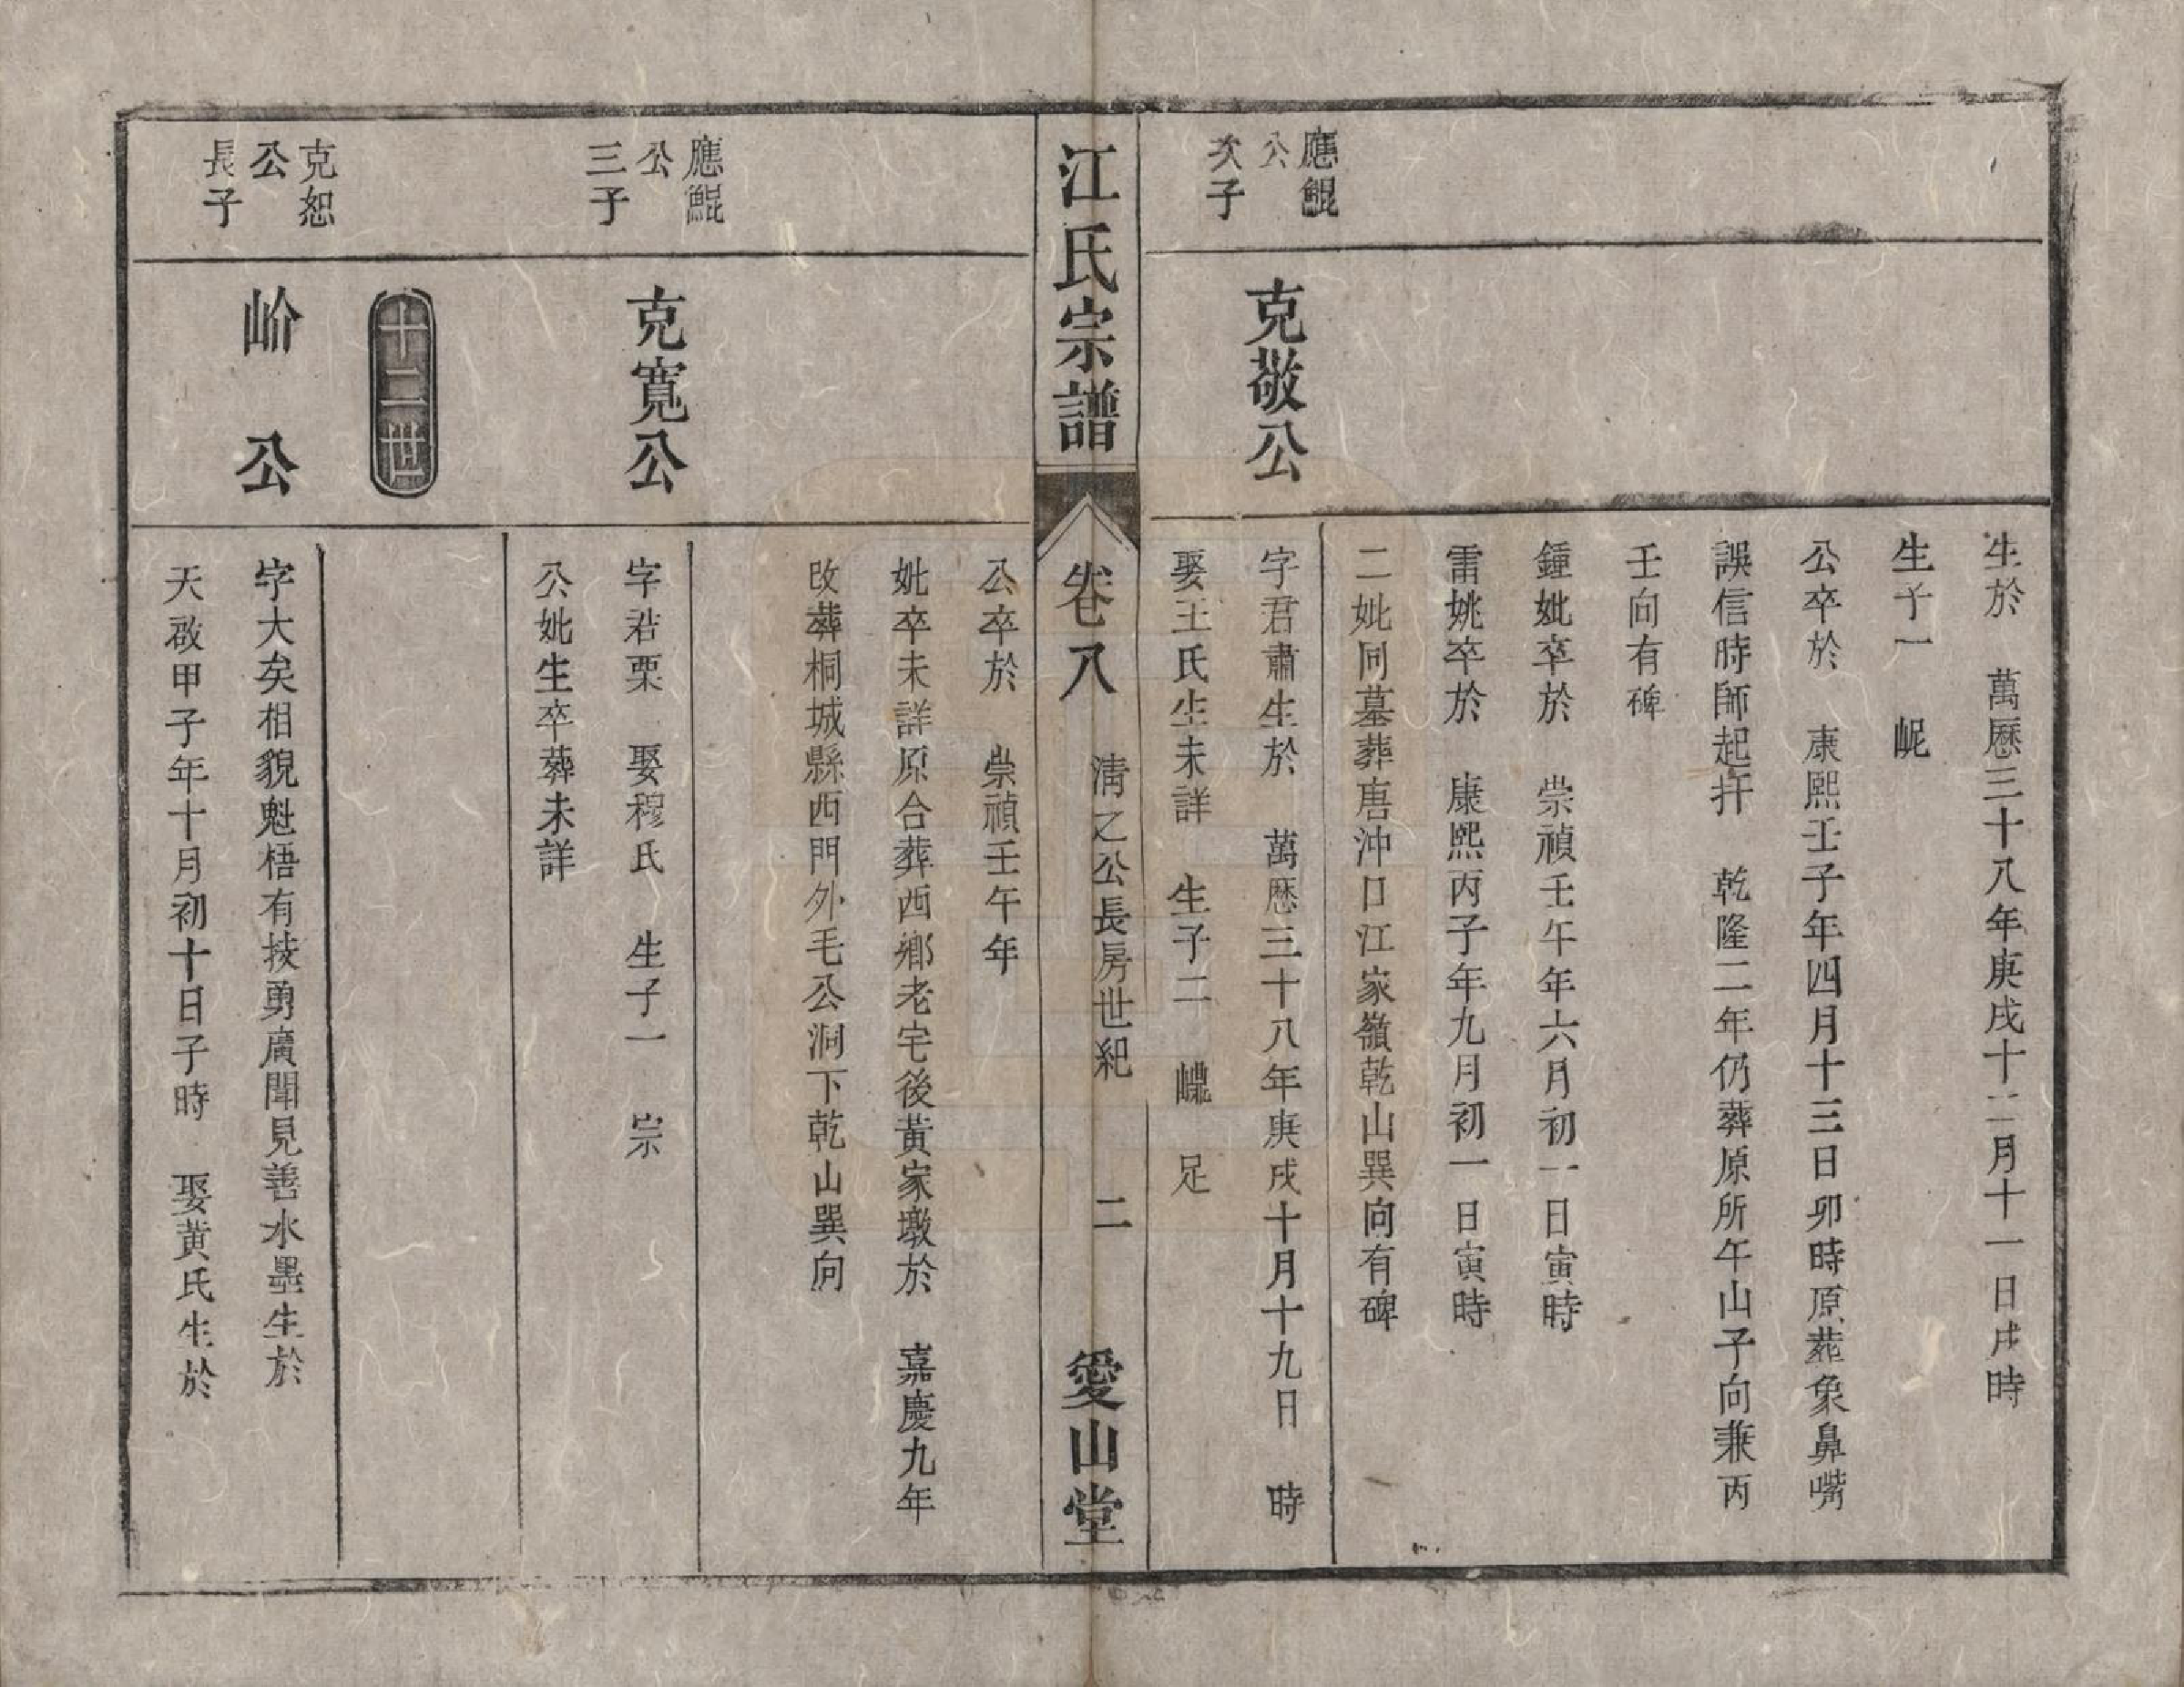 生於　萬曆三十八年庚戌十二月十一日戌時
生子一　㞾
公卒於　康熙壬子年四月十三日卯時原葬象鼻嘴
誤信時師起扞　乾隆二年仍葬原所午山子向兼丙
壬向有碑
鍾妣卒於　崇禎壬午年六月初一日寅時
雷姚卒於　康熙丙子年九月初一日寅時
二妣同墓葬唐沖口江家嶺乾山巽向有碑
應鯤
公
次子
克敬公
字君肅生於　萬曆三十八年庚戌十月十九日　時
娶王氏生未詳　生子二　　足
江氏宗譜
卷八
清之公長房世紀
二
愛山堂
公卒於　崇禎壬午年
妣卒未詳原合葬西鄉老宅後黃家墩於　嘉慶九年
改葬桐城縣西門外毛公洞下乾山巽向
應鯤
公
三子
克寬公
字若栗　娶程氏　生子一　崇
公妣生卒葬未詳
十二世
克恕
公
長子
崳公
字大矣相貌魁梧有技勇廣聞見善水墨生於
天啟甲子年十月初十日子時　娶黃氏生於